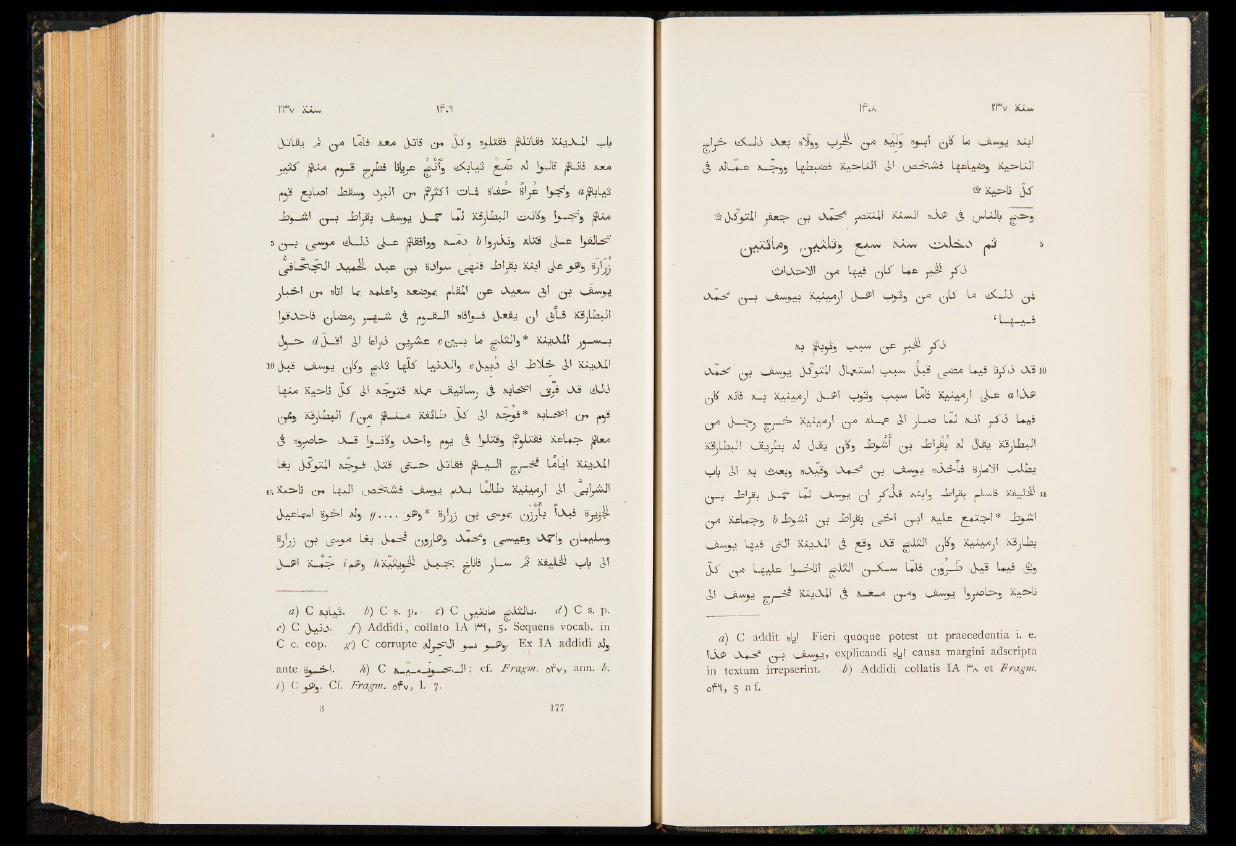 سنة ٢٣٧ ١٤٠٨
ابنه يوسف ما كان ابوه وليه من الحرب وولاه بعد ذلك خراج
الناحية وضياعها فشخص الى الناحية فضبطها ووجه عماله فى
كل ناحية ۞
وحج بالناس فى هذه السنة المنتصر محمد بن جعفر المتوكل ۞
5 ثم دخلت سنة سبع وثلثين ومائتين
ذكر الخبر عما كان فيها من الاحداث
فمن ذلك ما كان من وثوب اهل ارمينية بيوسف بن محمد
فيها،
ذكر الخبر عن سبب وثوبهم به
10 قد ذكرنا فيما مضى قبل سبب استعمال المتوكل يوسف بن محمد
هذا a على ارمينية فاما سبب وثوب اهل ارمينية به فانه كان
فيما ذكر انه لما سار الى عمله من ارمينية خرج رجل من
البطارقة يقال له بُقْراط بن أَشُوط وكان يقال له بطريق البطارقة
يطلب الامارة فأخذه يوسف بن محمد وقيّده وبعث به الى باب
15 الخليفة فاسلم بقراط وابنه فذُكر ان يوسف لمّا حمل بقراط بن
اشوط *اجتمع عليه ابن اخى بقراط بن اشوط b وجماعة من
بطارقة ارمينية وكان الثلج قد وقع فى المدينة التى فيها يوسف
وهى فيما قيل طرون فلما سكن الثلج اناخوا عليها من كل
ناحية وحاصروا يوسف ومن معه فى المدينة فخرج يوسف الى
a) C addit اباه. Fieri quoque potest ut praecedentia i. e.
يوسف بن محمد هذا, explicandi اباه causa margini adscripta
in textum irrepserint. b) Addidi collatis IA ٣٨ et Fragm.
٥٤٦, 5 a f.
سنة ٢٣٧ ١٤٠٩
باب المدينة فقاتلهم فقتلوه وكل من قاتل معه فاما من لم يقاتل
معه فانهم قالوا له ضَعْ ثيابك وٱنْجُ عريانا فطرح قوم منهم كثير
ثيابهم a ونجوا عُراةً حفاة فمات اكثرهم من البرد وسقطت اصابع قوم
منهم ونجوا وكانت البطارقة لمّا حمل يوسف بقراط بن اشوط
5 تحالفوا على قتله ونذروا b دمه ووافقهم على ذلك موسى بن
زُرارة وهو على ابنة بقراط فنهى سوادة بن عبد الحميد الجحّافى
يوسف بن ابى سعيد عن المقام بموضعه واعلمه بما اتاه من اخبار
البطارقة فأبى ان يفعل فوافاه القوم فى شهر رمضان فاحدقوا
بسور المدينة *والثلج ما بين c عشرين ذراعا الى اقل d حول
10 المدينة الى خلاط الى دبيل e والدنيا كلها ثلج وكان يوسف قبل
ذلك قد فرّق اصحابه فى رساتيق عمله فتوجه الى كل ناحية منها
قوم من اصحابه *فوجه الى كل طائفة منهم من f البطارقة وممن
معهم جماعة فقتلوهم وقتلوا فى يوم واحد وكانوا قد حاصروه فى
المدينة اياما فخرج اليهم فقاتل حتى قتل فوجه المتوكل بغا
15 الشرابى الى ارمينية طالبا بدم يوسف فشخص اليها من ناحية
الجزيرة فبدأ بأرزن بموسى بن زرارة *وهو .... g وله اخوة اسماعيل
وسليمان واحمد وعيسى ومحمد وهارون فحمل بغا موسى بن زرارة
الى باب الخليفة ثم سار فاناخ بجبل الخويثية h وهم i جمة اهل
a) C ثيابه. b) C s. p. c) C بالثلج مائتين. d) C s. p.
e) C دنبل. f) Addidi, collato IA ٣٩, 5. Sequens vocab. in
C c. cop. g) C corrupte وهو. Ex IA addidi وله
ante اخوة. h) C; cf. Fragm. ٥٤٧, ann. b.
i) C وهو. Cf. Fragm. ٥٤٧, l. 7.
3 177